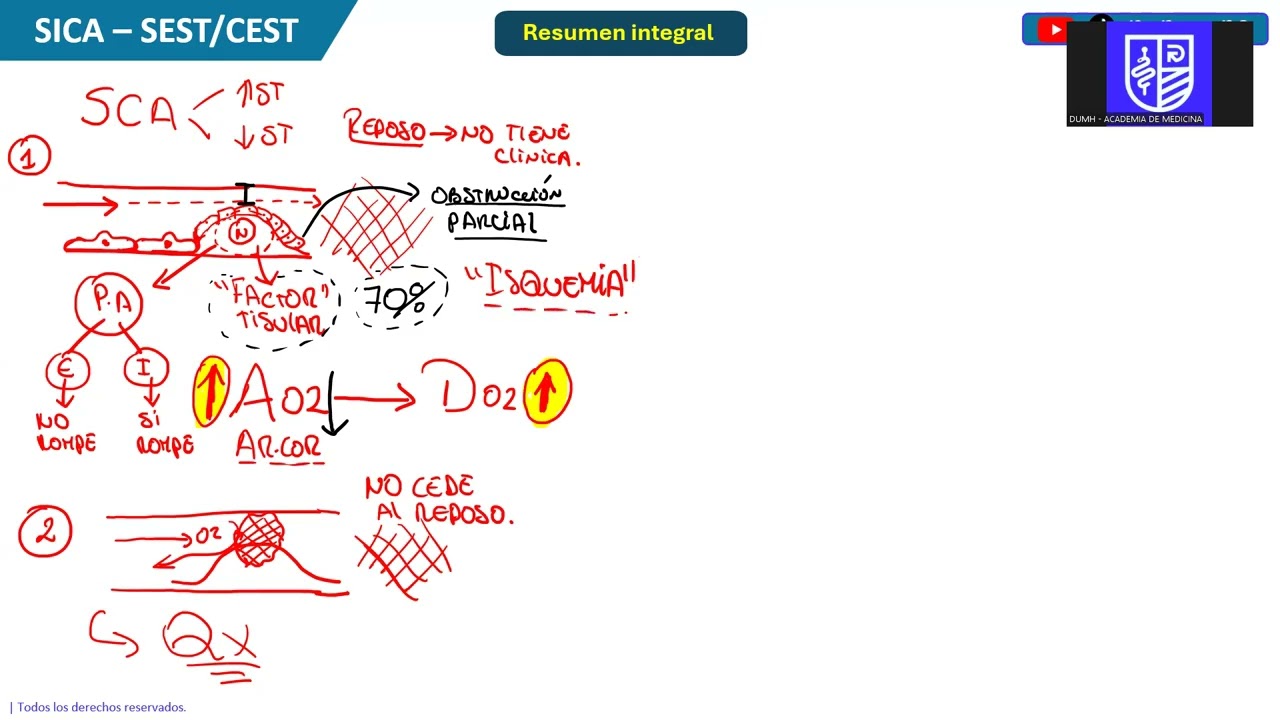 SICA – SEST/CEST
Resumen integral
DUMH - ACADEMIA DE MEDICINA
SCA
↑ST
↓ST
REPOSO → NO TIENE
CLÍNICA.
1
I
OBSTRUCCIÓN
PARCIAL
N
P.A
"FACTOR"
TISULAR
70%
"ISQUEMIA"
E
I
NO
ROMPE
SÍ
ROMPE
↑ AO2 ↓ → DO2 ↑
AR.COR
NO CEDE
AL REPOSO.
2
O2
Qx
| Todos los derechos reservados.